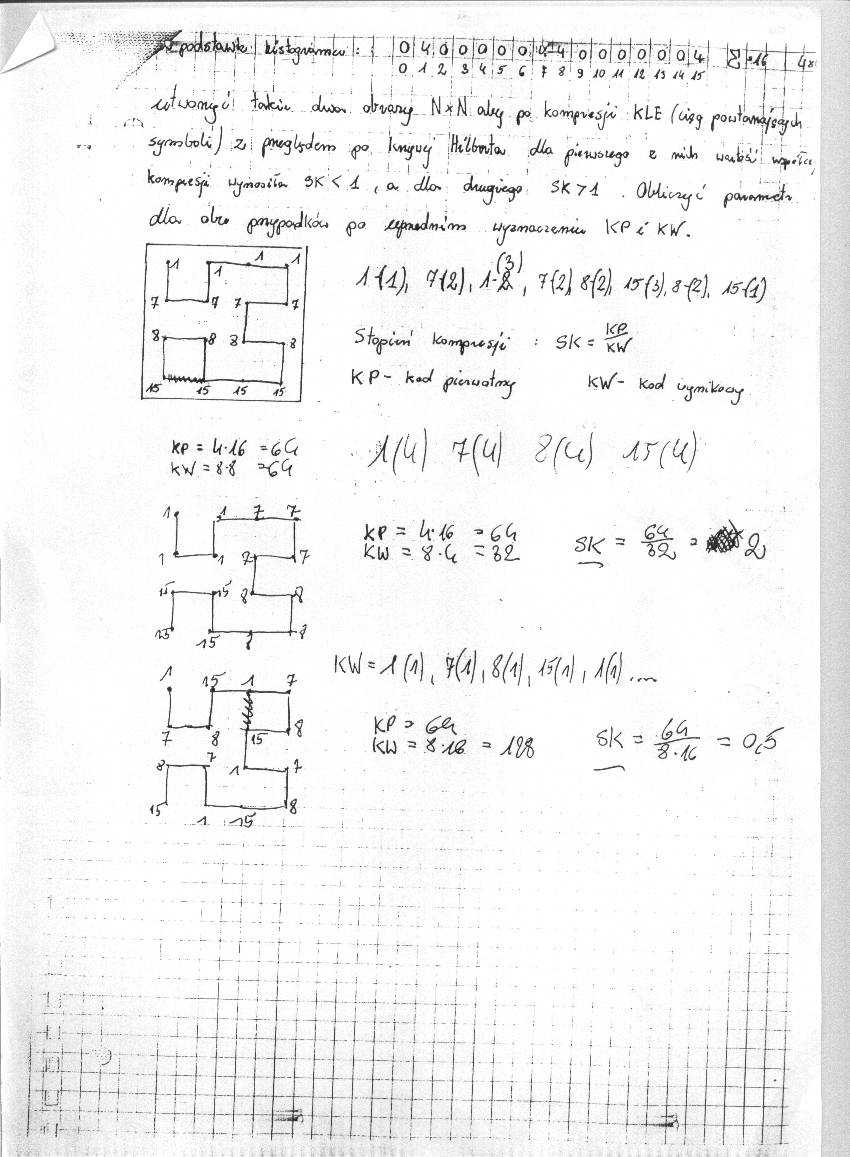 podstawie histogramu : 0 4 0 0 0 0 0 4 4 0 0 0 0 0 0 4 Σ=16
0 1 2 3 4 5 6 7 8 9 10 11 12 13 14 15
utworzyć takie dwa obrazy N×N aby po kompresji RLE (ciąg powtarzających
symboli) z przeglądem po krzywej Hilberta dla pierwszego z nich wartość
kompresji wynosiła SK < 1, a dla drugiego SK > 1. Obliczyć
dla obu przypadków po uprzednim wyznaczeniu KP i KW.
1 1 1 1
7 7 7 7
8 8 8 8
15 15 15 15
1-(1), 7-(2), 1-(3), 7(2), 8(2), 15-(3), 8-(2), 15-(1)
Stopień kompresji : SK = KP/KW
KP - kod pierwotny KW - kod wynikowy
KP = 4·16 = 64
KW = 8·8 = 64
1(4) 7(4) 8(4) 15(4)
1 1 7 7
1 1 7 7
15 15 8 8
15 15 8 8
KP = 4·16 = 64
KW = 8·4 = 32
SK = 64/32 = 2
KW = 1(1), 7(1), 8(1), 15(1), 1(1)....
1 15 1 7
7 8 15 8
8 7 1 7
15 1 15 8
KP = 64
KW = 8·16 = 128
SK = 64/8·16 = 0,5